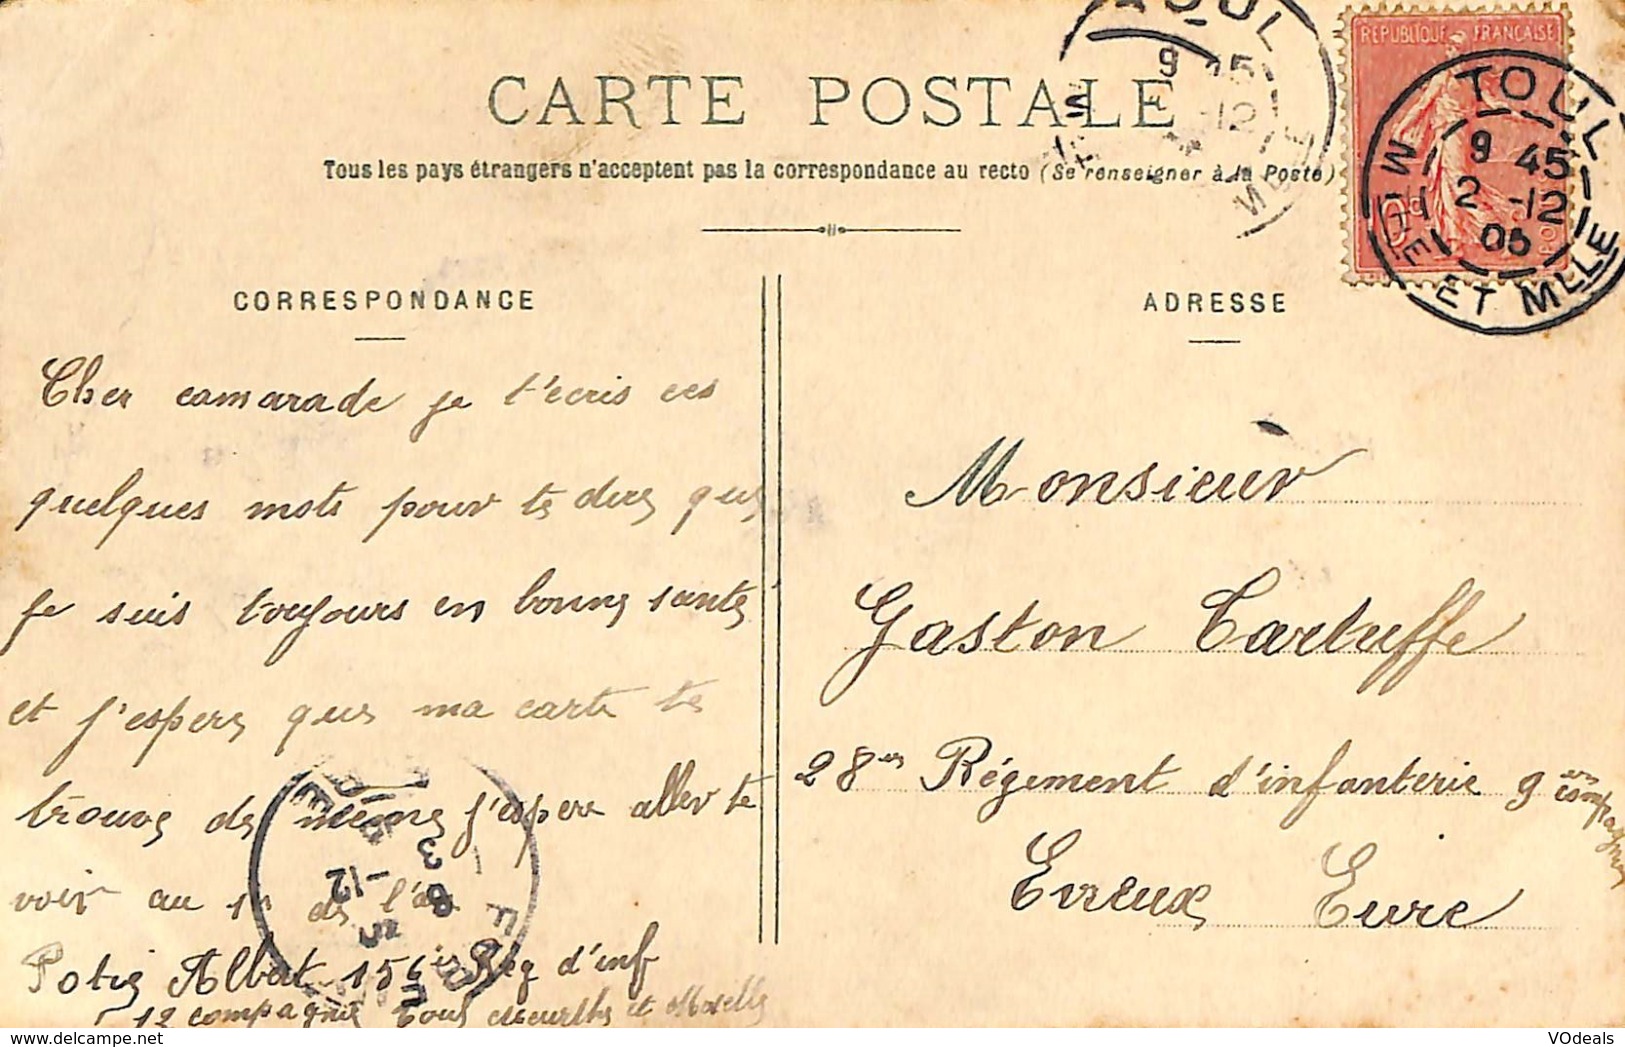 CARTE POSTALE
Tous les pays étrangers n'acceptent pas la correspondance au recto (Se renseigner à la Poste)
TOUL
9 45
12
RÉPUBLIQUE FRANÇAISE
TOUL
9 45
2 -12
05
MTHE ET MLLE
CORRESPONDANCE
Cher camarade je t'ecris ces
quelques mots pour te dire que
je suis toujours en bonne santé
et j'espere que ma carte te
trouve de meme j'espere aller te
voir au 1r de l'an
Potié Albert 156 Reg d'inf
12 compagnie Toul Meurthe et Moselle
3
8
-12
ADRESSE
Monsieur
Gaston Tartuffe
28me Régement d'infanterie 9em compagnie
Evreux Eure
VOdeals